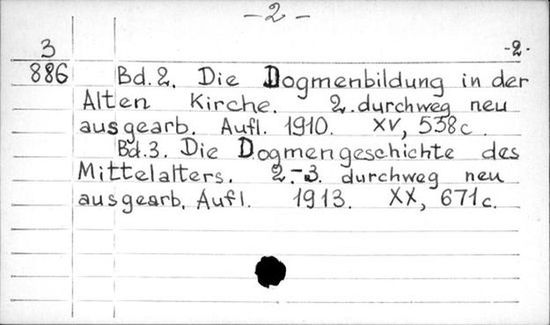 -2-
3
-2-
886 Bd. 2. Die Dogmenbildung in der
Alten Kirche. 2. durchweg neu
ausgearb. Aufl. 1910. XV, 538 c.
Bd. 3. Die Dogmengeschichte des
Mittelalters. 2.-3. durchweg neu
ausgearb. Aufl. 1913. XX, 671 c.